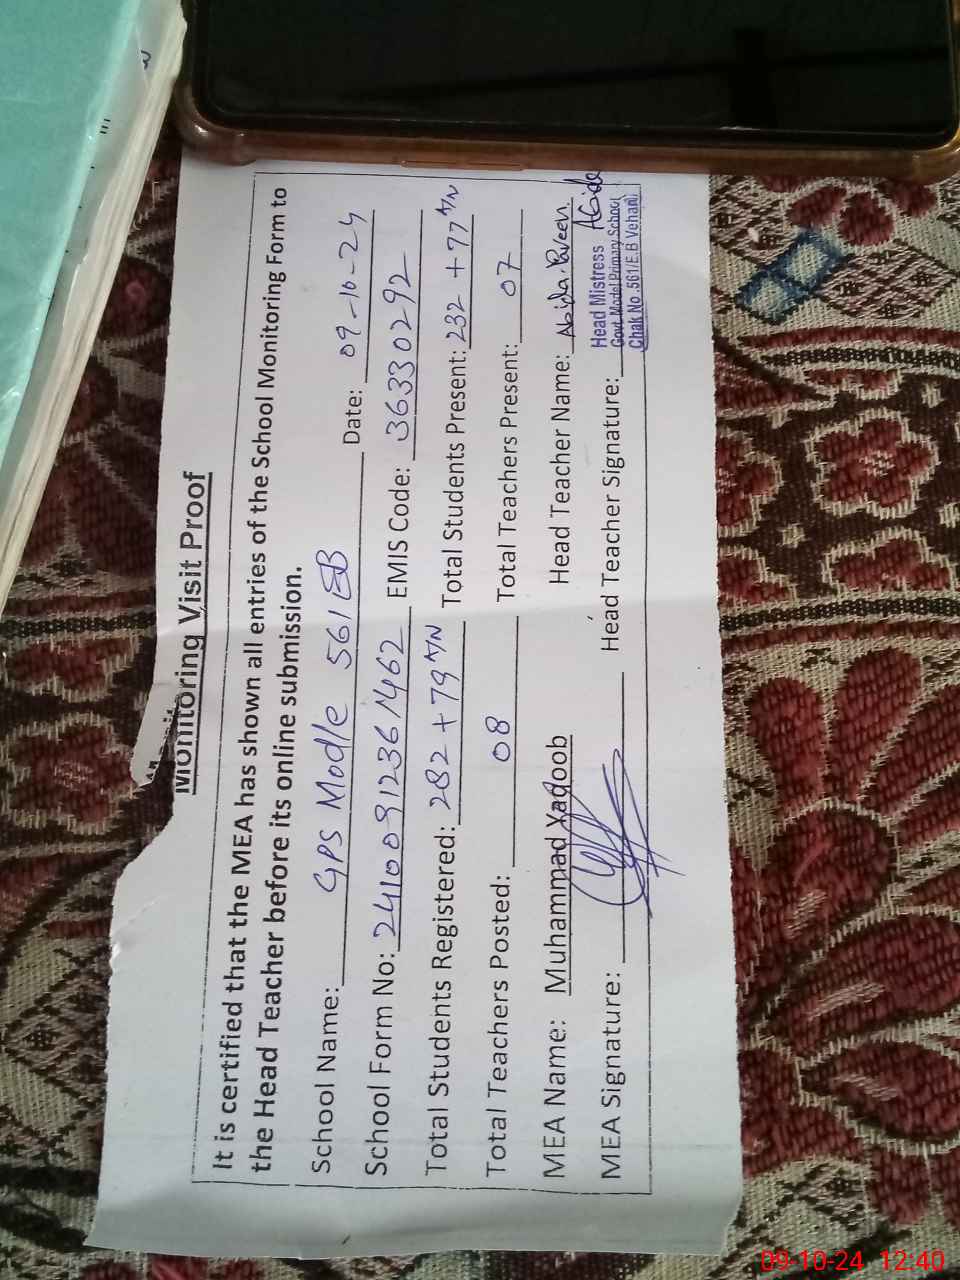 Monitoring Visit Proof
It is certified that the MEA has shown all entries of the School Monitoring Form to
the Head Teacher before its online submission.
School Name: GPS Modle 561 EB Date: 09-10-24
School Form No: 24100912361462 EMIS Code: 36330292
Total Students Registered: 282 + 79 Total Students Present: 232 + 77
Total Teachers Posted: 08 Total Teachers Present: 07
MEA Name: Muhammad Yaqoob Head Teacher Name: Abida Parveen
MEA Signature: Head Teacher Signature: Abida
Head Mistress
Govt. Model Primary School
Chak No. 561/E.B Vehari
09-10-24 12:40